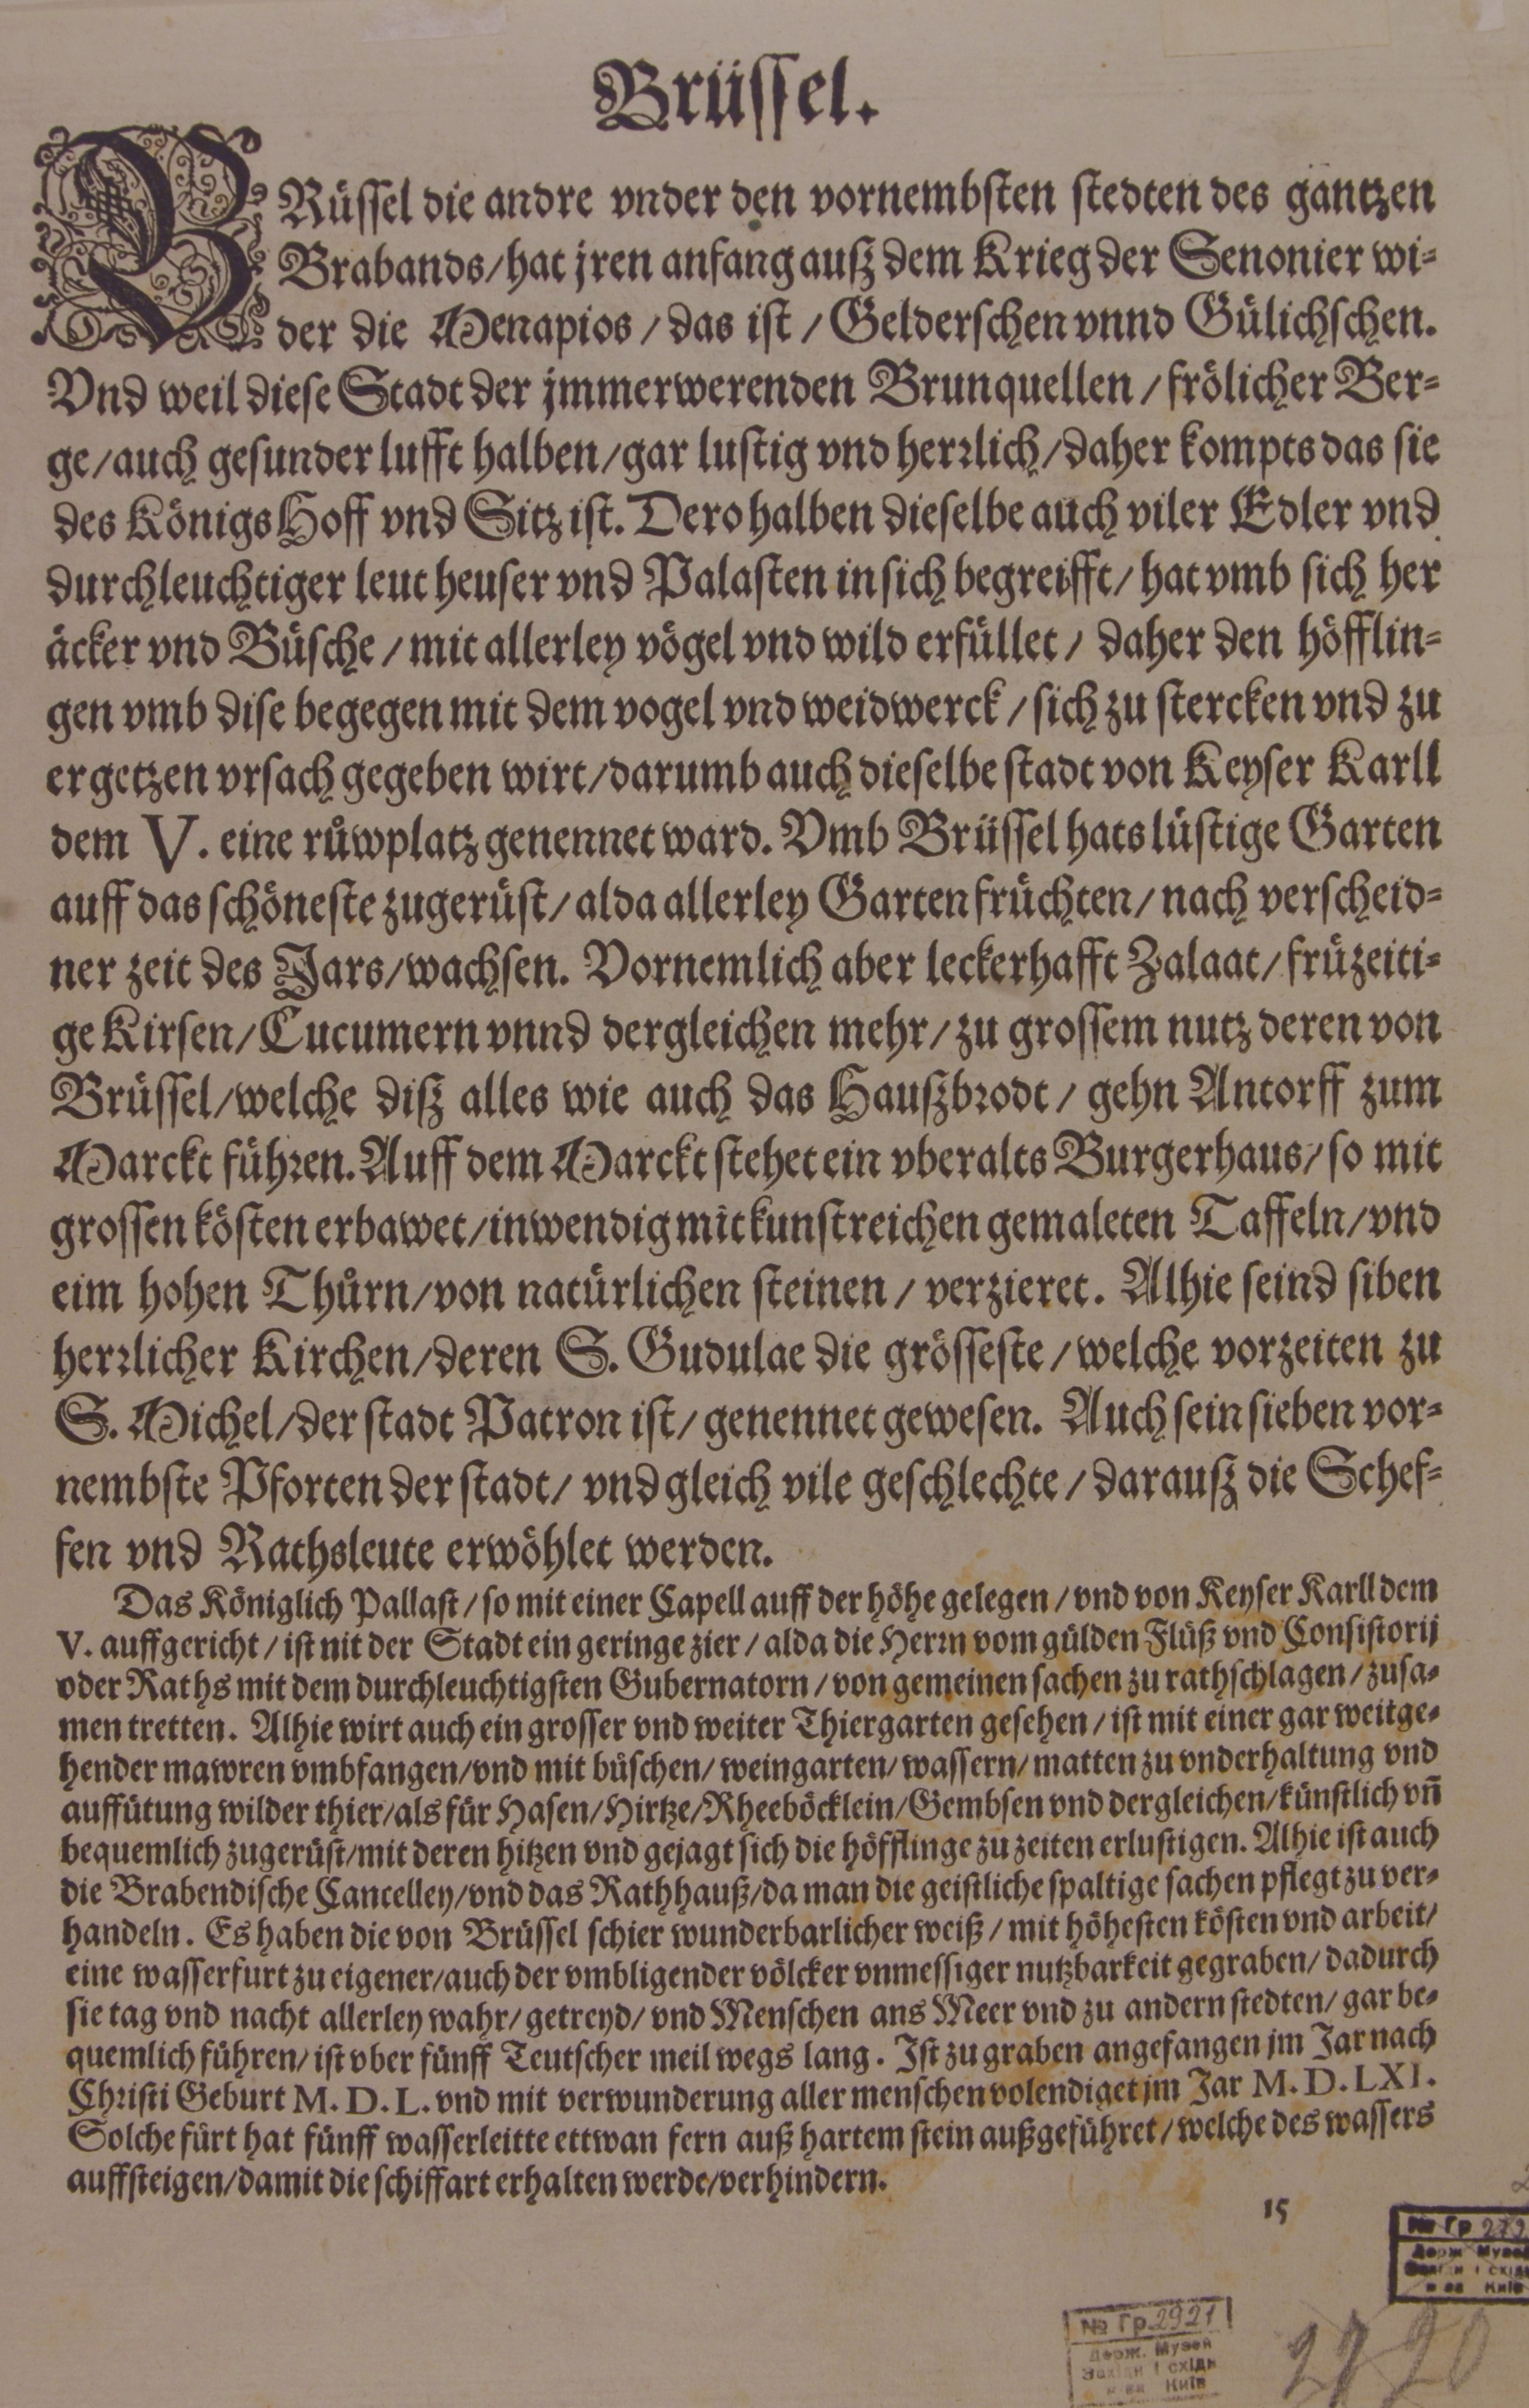 Brüssel.
BRüssel die andre vnder den vornembsten stedten des gantzen
Brabands/hat jren anfang auß dem Krieg der Senonier wi-
der die Menapios / das ist / Gelderschen vnnd Gülichschen.
Vnd weil diese Stadt der jmmerwerenden Brunquellen / frölicher Ber-
ge/auch gesunder lufft halben/gar lustig vnd herrlich/daher kompts das sie
des Königs Hoff vnd Sitz ist. Derohalben dieselbe auch viler Edler vnd
durchleuchtiger leut heuser vnd Palasten in sich begreifft/ hat vmb sich her
äcker vnd Büsche / mit allerley vögel vnd wild erfüllet / daher den höfflin-
gen vmb dise begegen mit dem vogel vnd weidwerck / sich zu stercken vnd zu
ergetzen vrsach gegeben wirt/darumb auch dieselbe stadt von Keyser Karll
dem V. eine růwplatz genennet ward. Vmb Brüssel hats lüstige Garten
auff das schöneste zugerüst/ alda allerley Gartenfrüchten/ nach verscheid-
ner zeit des Jars/wachsen. Vornemlich aber leckerhafft Zalaat/ früzeiti-
ge Kirsen/Cucumern vnnd dergleichen mehr/ zu grossem nutz deren von
Brüssel/welche diß alles wie auch das Haußbrodt / gehn Antorff zum
Marckt führen. Auff dem Marckt stehet ein vberalts Burgerhaus/ so mit
grossen kösten erbawet/inwendig mit kunstreichen gemaleten Taffeln/vnd
eim hohen Thůrn/von natürlichen steinen / verzieret. Alhie seind siben
herrlicher Kirchen/deren S. Gudulae die grösseste / welche vorzeiten zu
S. Michel/der stadt Patron ist/ genennet gewesen. Auch sein sieben vor-
nembste Pforten der stadt/ vnd gleich vile geschlechte / darauß die Schef-
fen vnd Rathsleute erwöhlet werden.
Das Königlich Pallast / so mit einer Capell auff der höhe gelegen / vnd von Keyser Karll dem
V. auffgericht / ist nit der Stadt ein geringe zier / alda die Herrn vom gülden Flüß vnd Consistorij
oder Raths mit dem durchleuchtigsten Gubernatorn / von gemeinen sachen zu rathschlagen / zusa-
men tretten. Alhie wirt auch ein grosser vnd weiter Thiergarten gesehen / ist mit einer gar weitge-
hender mawren vmbfangen/vnd mit büschen/ weingarten/ wassern/ matten zu vnderhaltung vnd
auffütung wilder thier/als für Hasen/Hirtze/Rheeböcklein/Gembsen vnd dergleichen/künstlich vn̄
bequemlich zugerüst/mit deren hitzen vnd gejagt sich die höfflinge zu zeiten erlustigen. Alhie ist auch
die Brabendische Cancelley/vnd das Rathhauß/da man die geistliche spaltige sachen pflegt zu ver-
handeln. Es haben die von Brüssel schier wunderbarlicher weiß / mit höhesten kösten vnd arbeit/
eine wasserfurt zu eigener/auch der vmbligender völcker vnmessiger nutzbarkeit gegraben/ dadurch
sie tag vnd nacht allerley wahr/ getreyd/ vnd Menschen ans Meer vnd zu andern stedten/ gar be-
quemlich führen/ ist vber fünff Teutscher meil wegs lang. Ist zu graben angefangen jm Jar nach
Christi Geburt M. D. L. vnd mit verwunderung aller menschen volendiget jm Jar M. D. LXI.
Solche fürt hat fünff wasserleitte ettwan fern auß hartem stein außgeführet / welche des wassers
auffsteigen/damit die schiffart erhalten werde/verhindern.
15
№ Гр 292
Держ. Музей
№ Гр.2921
Держ. Музей
Західн і східн
Київ
2920